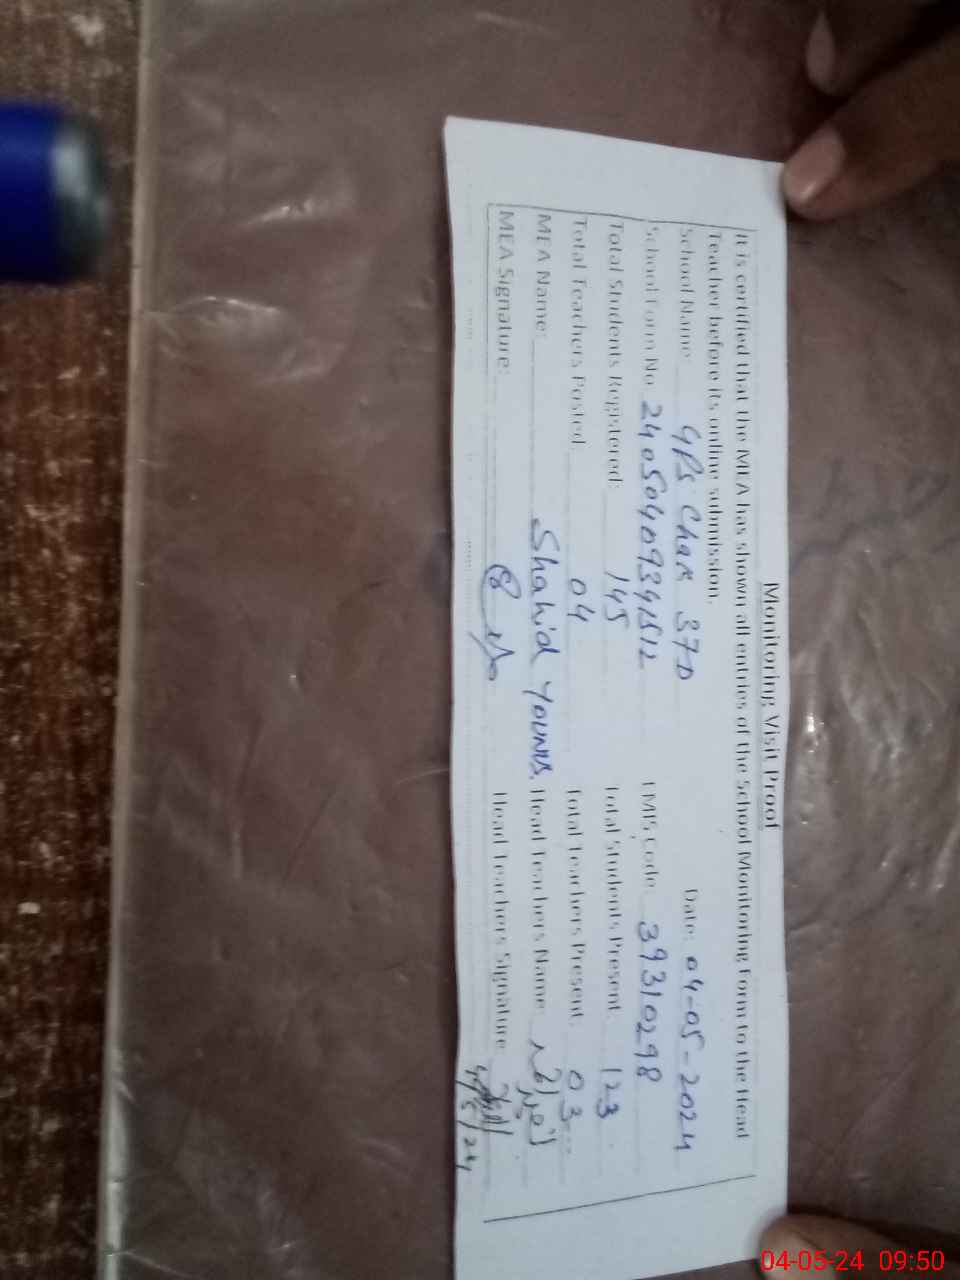 Monitoring Visit Proof
It is certified that the MEA has shown all entries of the School Monitoring Form to the Head
Teacher before its online submission.
School Name: GPS Chak 37D Date: 04-05-2024
School Form No 24050409341512 EMIS Code: 39310298
Total Students Registered: 145 Total Students Present: 123
Total Teachers Posted: 04 Total Teachers Present: 03
MEA Name: Shahid Younis. Head Teachers Name:
MEA Signature: Head Teachers Signature
4/5/24
04-05-24 09:50